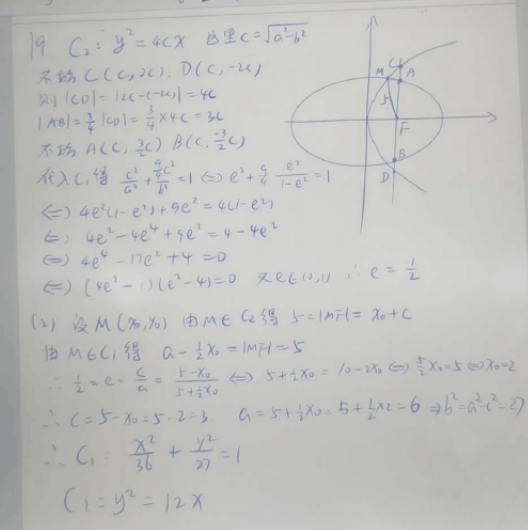 19. C₂: y²=4cx 这里c=√(a²-b²)
不妨C(c,2c). D(c,-2c)
则|CD|=|2c-(-2c)|=4c
|AB|=3/4|CD|=3/4×4c=3c
不妨A(c,3/2c) B(c,-3/2c)
代入C₁得 c²/a²+(9/4c²)/b²=1 ⇔ e²+9/4 e²/(1-e²)=1
⇔ 4e²(1-e²)+9e²=4(1-e²)
⇔ 4e²-4e⁴+9e²=4-4e²
⇔ 4e⁴-17e²+4=0
⇔ (4e²-1)(e²-4)=0 又e∈(0,1) ∴ e=1/2
(2) 设M(x₀,y₀) 由M∈C₂得 5=|MF|=x₀+c
由M∈C₁得 a-1/2x₀=|MF|=5
∴ 1/2=e=c/a=(5-x₀)/(5+1/2x₀) ⇔ 5+1/2x₀=10-2x₀ ⇔ 5/2x₀=5 ⇔ x₀=2
∴ c=5-x₀=5-2=3. a=5+1/2x₀=5+1/2×2=6 ⇒ b²=a²-c²=27
∴ C₁: x²/36+y²/27=1
C₂=y²=12x
M
C
A
5
F
B
D